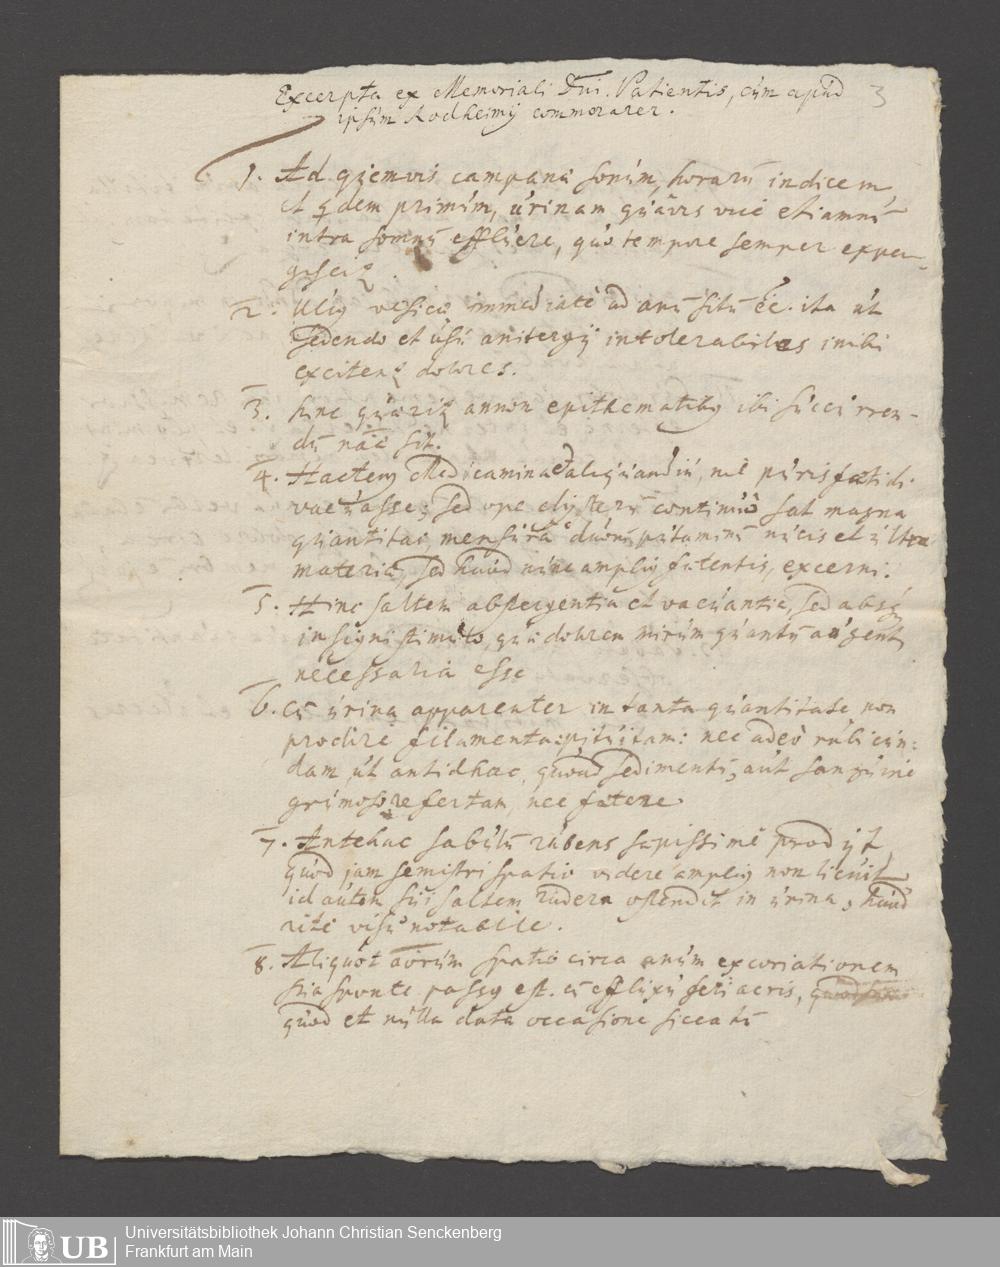 Excerpta ex Memoriali Dni. Patientis, cum apud
ipsum Rodheimij commorarer.
3
1. Ad quemvis campanæ sonum, horarū indicem
et qdem primum, urinam quavis vice etiamnū
intra somnū effluere, quo tempore semper exper-
giscit.
2. Ulcg vesicæ immediatè ad anū sitū eē. ita ut
sedendo et usu anitergij intolerabiles inibi
excitent dolores.
3. hinc quærit annon epithematibg ibi succurren-
dū sit.
4. Hacteng Medicamina aliquandiu, nil puris fœtidi
vacuasse; sed ope clysterū continuò sat magna
quantitas, mensurâ duorū putaminū nucis et ultra
materiæ, sed haud nunc amplig fœtentis, excerni.
5. Hinc saltem abstergentia et vacuantia, sed absq
insigni stimulo, qui dolorem mirum quantū augent,
necessaria esse
6. cū urina apparenter in tanta quantitate non
prodire filamenta: pituitam: nec adeò rubicun:
dam ut antidhac, quoad sedimentū, aut sanguine
grumoso refertam, nec fœtere.
7. Antehac sabulū rubens sæpissimè prodijt,
quod jam semestri spatio videre amplig non licuit,
id autem sui saltem rudera ostendit in urina, haud
ritè visu notabile.
8. Aliquot spatio circa anum excoriationem
sua sponte passg est. cū effluxu seri acris,
quod et nulla data occasione siccatū
UB
Universitätsbibliothek Johann Christian Senckenberg
Frankfurt am Main